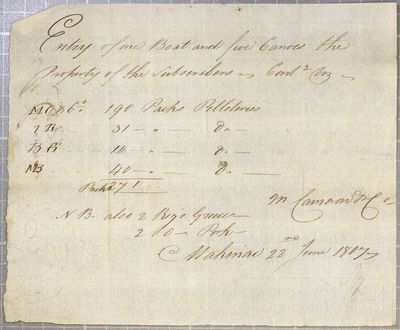 Entry of one Boat and five Canoes the
Property of the Subscribers
190 Packs Pelleteries
J B 31 - " - do -
B B 10 - " - do -
MB 40 - " - do -
Packs 271
M. Cameron & Co
N B also 2 Kegs Grease
2 do Pork
Makinac 22nd June 1807